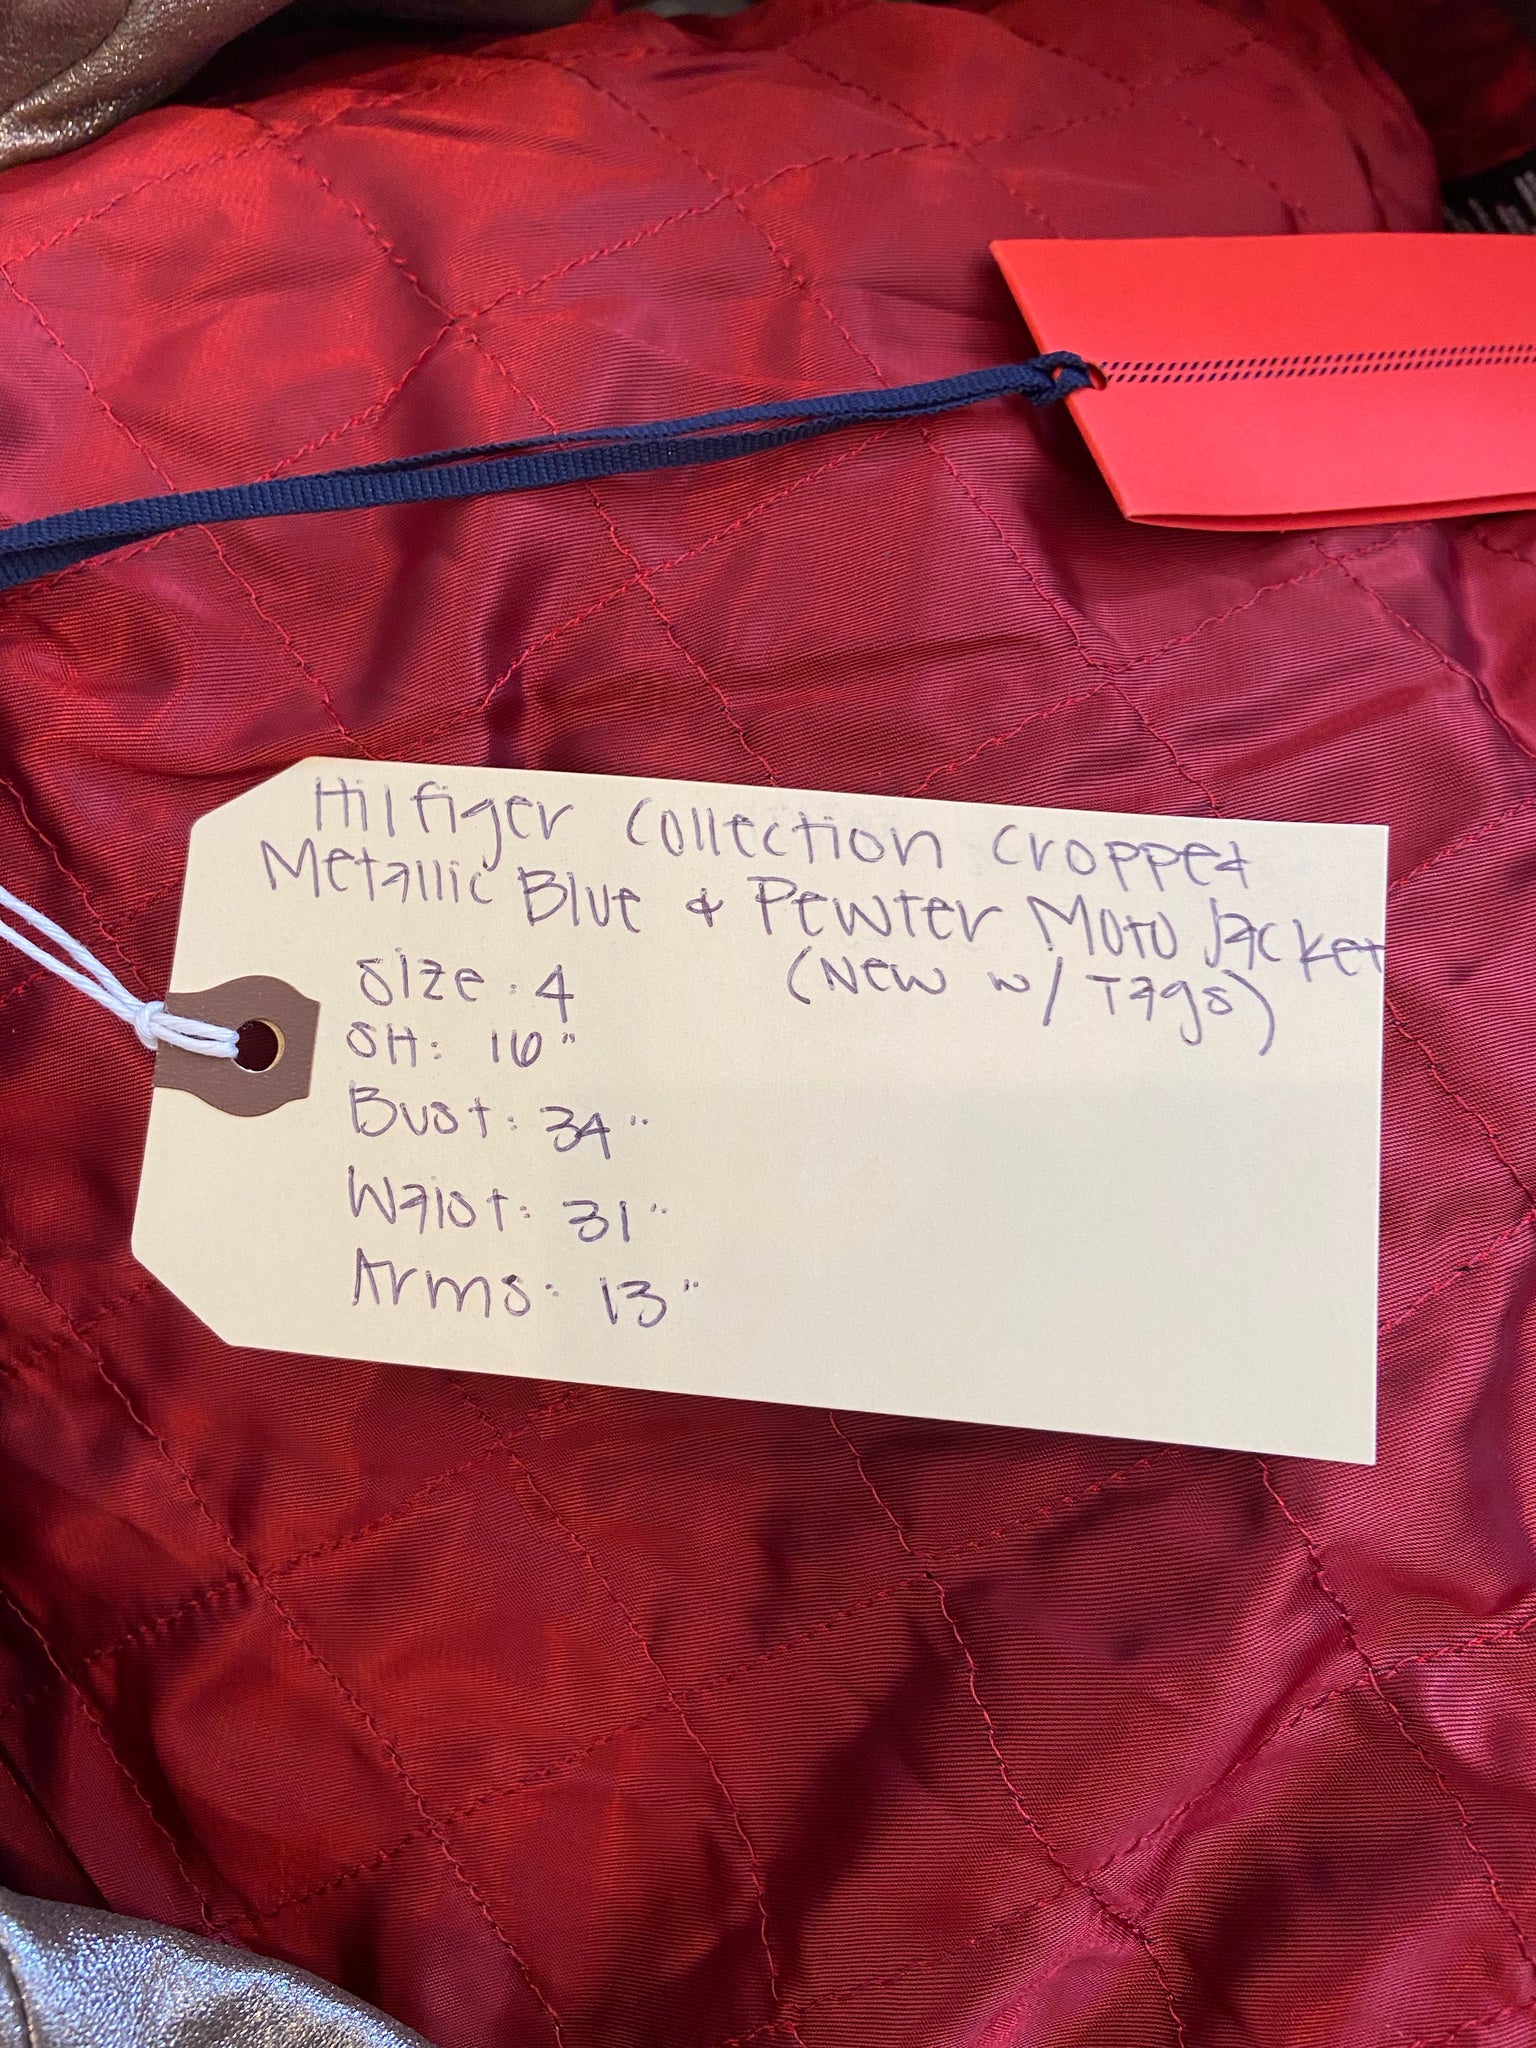 Hilfiger Collection Cropped
Metallic Blue & Pewter Moto Jacket
(New w/ Tags)
Size: 4
SH: 16"
Bust: 34"
Waist: 31"
Arms: 13"